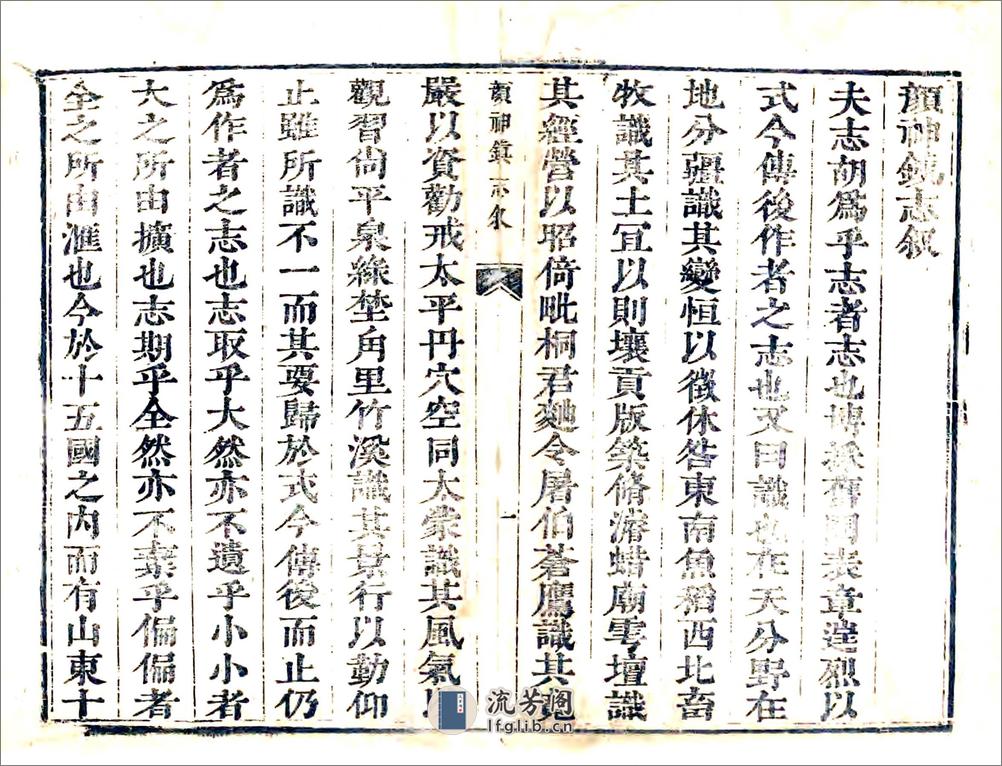 顏神鎮志叙
夫志胡爲乎志者志也博採舊聞表章逹烈以
式今傳後作者之志也又曰識也在天分野在
地分疆識其變恒以徵休咎東南魚稻西北畜
牧識其土宜以則壤貢版築脩濬蜡廟雩壇識
其經營以昭倚毗桐君𪎭令屠伯蒼鷹識其
顏神鎮志
一
嚴以資勸戒太平丹穴空同太蒙識其風氣以
觀習尚平泉綠埜角里竹溪識其景行以勤仰
止雖所識不一而其要歸於式今傳後而止仍
爲作者之志也志取乎大然亦不遺乎小小者
大之所由擴也志期乎全然亦不棄乎偏偏者
全之所由滙也今於十五國之内而有山東十
流芳阁
lfglib.cn